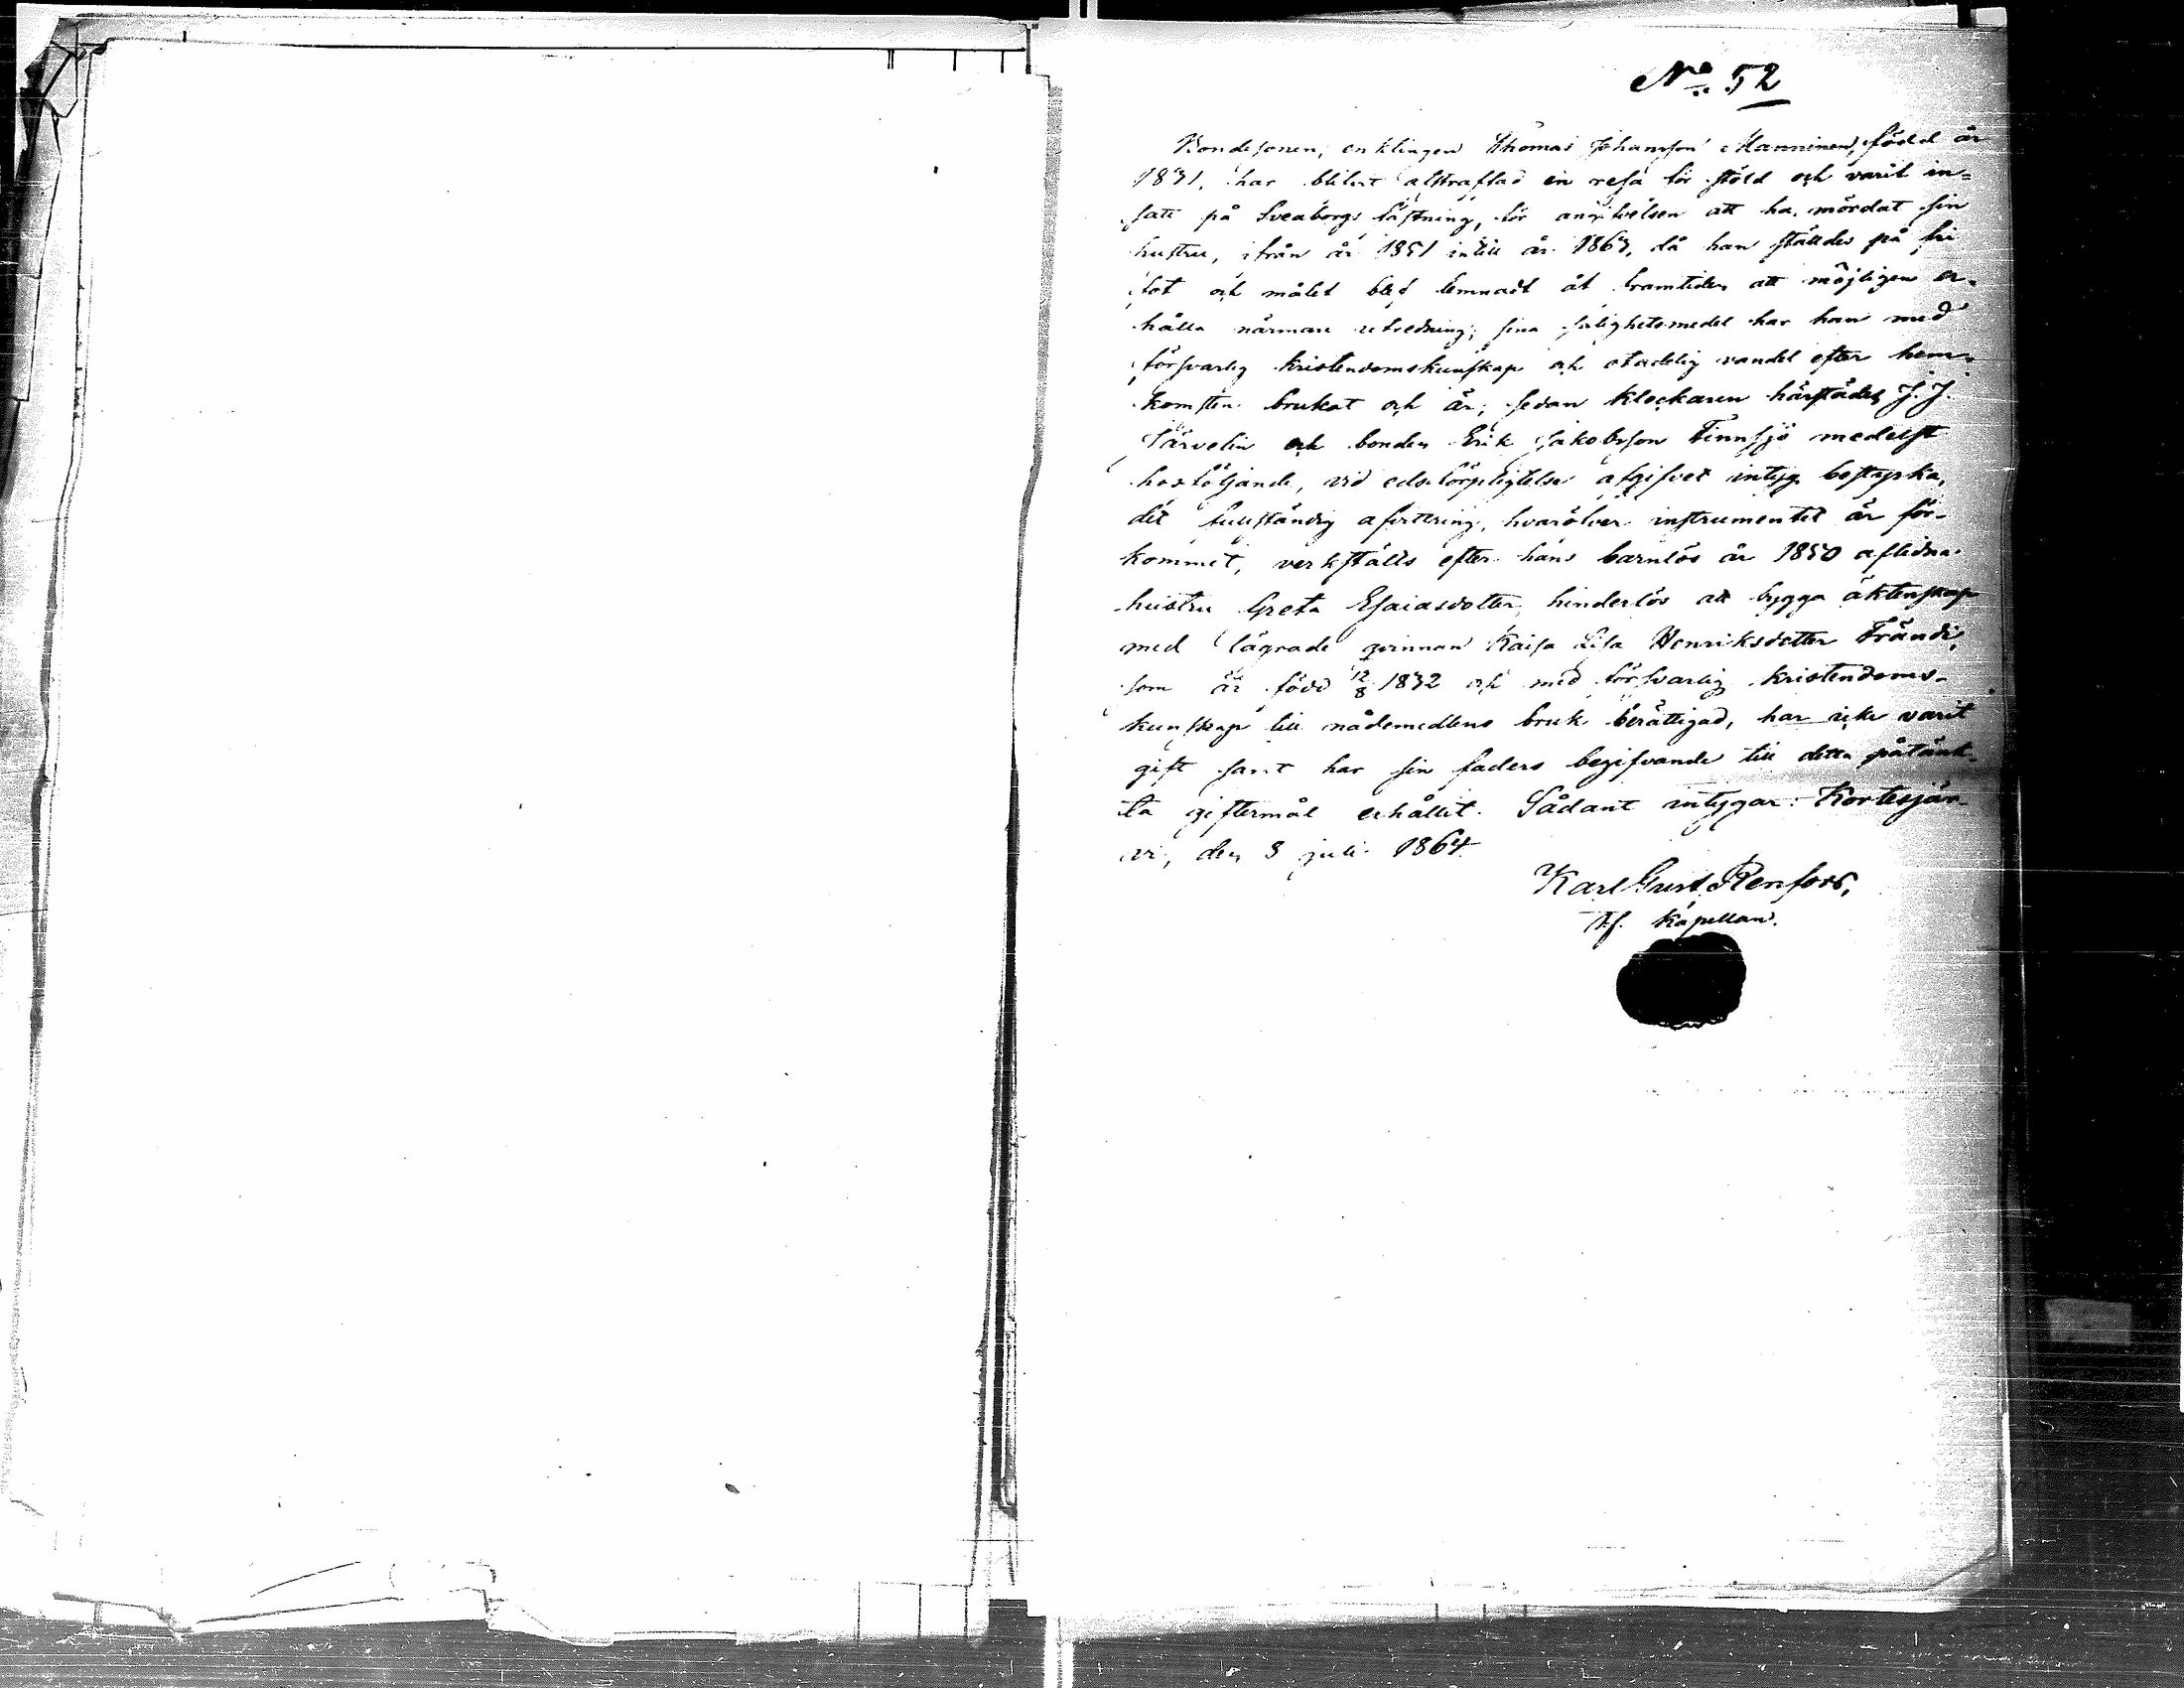 No. 52
Bondesonen, enklingen Thomas Johansson Manninen, född år
1831, har blifvit afstraffad en resa för stöld och varit in=
satt på Sveaborgs fästning, för angifvelsen att ha mördat sin
hustru, ifrån år 1851 intill år 1863, då han ställdes på fri
fot och målet blef lemnadt åt framtiden att möjligen er-
hålla närmare utredning; sina salighetsmedel har han med
försvarlig kristendomskunskap och otadelig vandel efter hem-
komsten brukat och är, sedan klockaren härstädes J. J.
Särvelin och bonden Erik Jakobsson Finnsjö medelst
hosföljande, vid edsförpligtelse afgifvet intyg bestyrka,
det fullständig afvittring, hvaröfver instrumentet är för-
kommet, verkställts efter hans barnlös år 1850 aflidna
hustru Greta Esaiasdotter, hinderlös att bygga äktenskap
med lägrade qvinnan Kaisa Lisa Henriksdotter Frändi,
som är född 12/8 1832 och med försvarlig kristendoms-
kunskap till nådemedlens bruk berättigad, har icke varit
gift samt har sin faders begifvande till detta påtänk-
ta giftermål erhållit. Sådant intygar: Kortesjär-
vi, den 3 juli 1864.
Karl Gust. Renfors,
Kapellan.